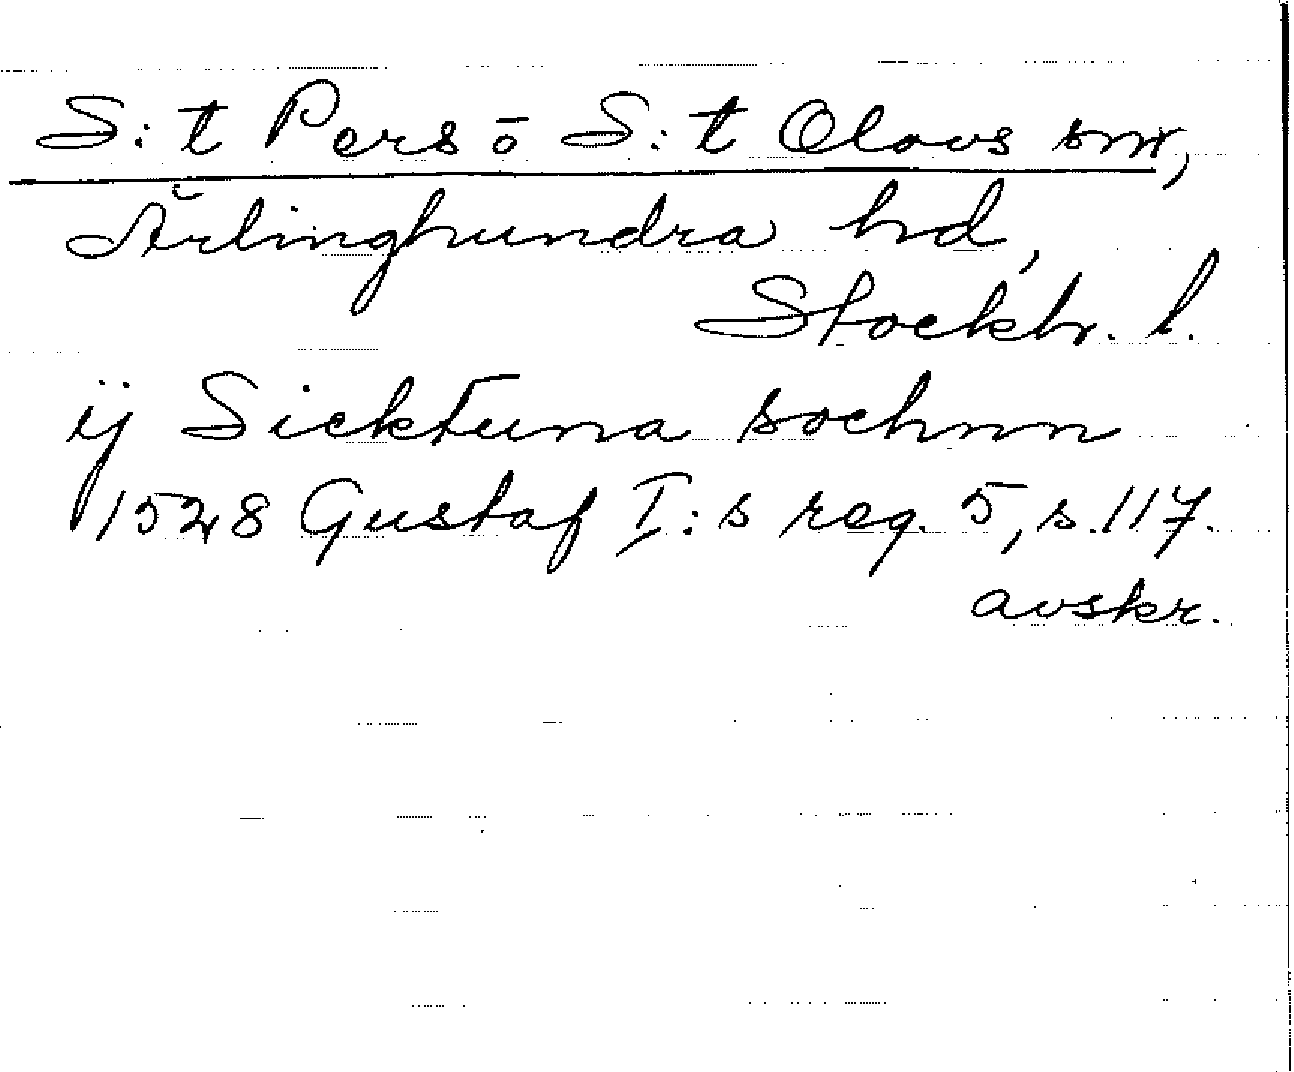 S:t Pers ō S:t Olovs snr,
Ärlinghundra hd,
Stockh. l.
ij Sicktuna sochnn
1528 Gustaf I:s reg. 5, s. 117.
avskr.